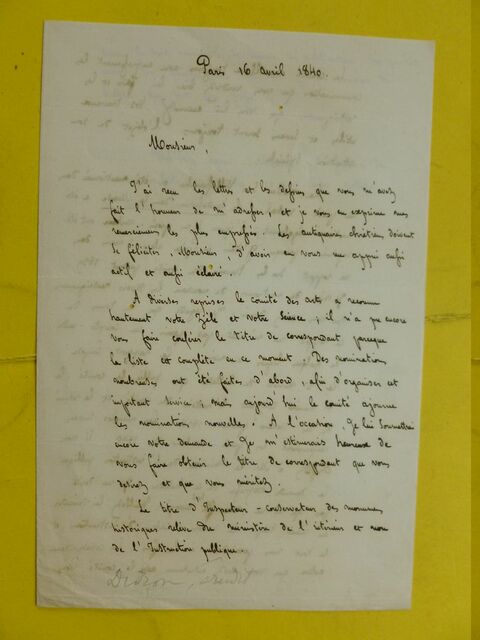 Paris 16 avril 1840.
Monsieur,
J'ai reçu les lettres et les dessins que vous m'avez
fait l'honneur de m'adresser, et je vous en exprime mes
remerciemens les plus empressés. Les antiquaires chrétiens doivent
se féliciter, Monsieur, d'avoir en vous un appui aussi
actif et aussi éclairé.
A diverses reprises le comité des arts a reconnu
hautement votre Zèle et votre Science ; il n'a pu encore
vous faire conférer le titre de correspondant parceque
la liste est complète en ce moment. Des nominations
nombreuses ont été faites d'abord, afin d'organiser cet
important service ; mais aujourd'hui le comité ajourne
les nominations nouvelles. A l'occasion, Je lui soumettrai
encore votre demande et Je m'estimerais heureux de
vous faire obtenir le titre de correspondant que vous
desirez et que vous méritez.
Le titre d'Inspecteur-conservateur des monumens
historiques relève du ministère de l'intérieur et non
de l'Instruction publique.
Didron,